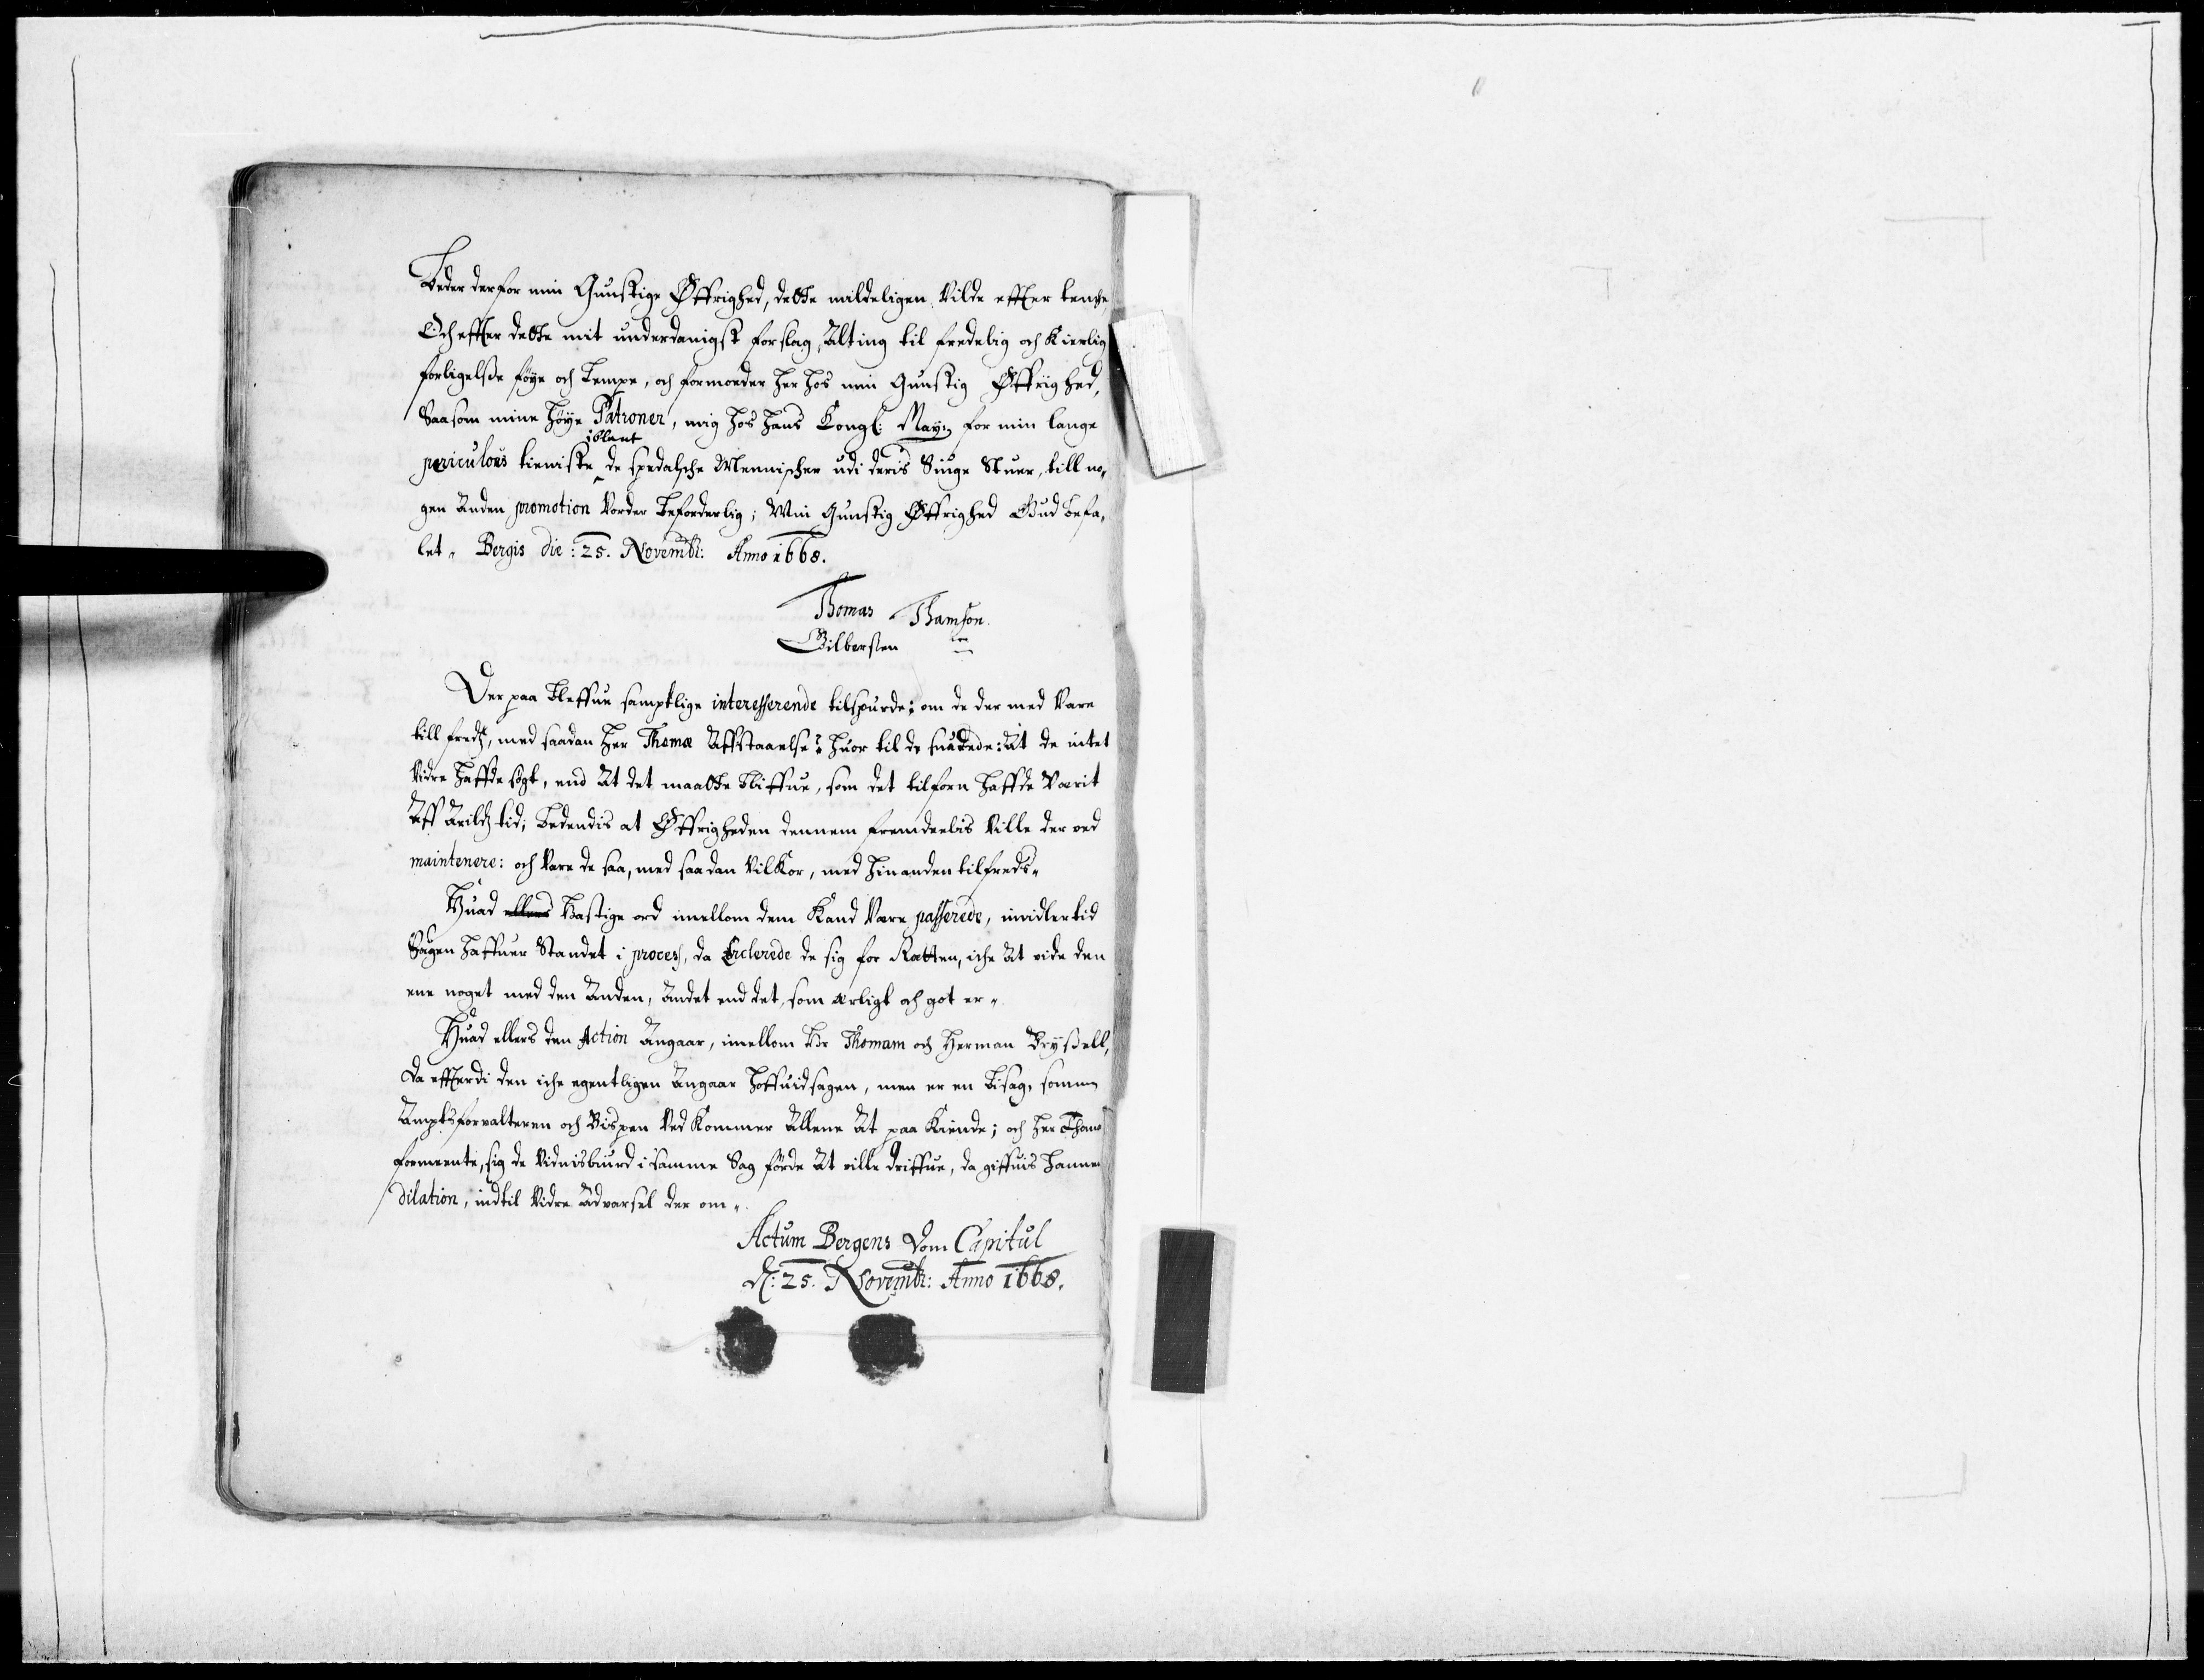 Beder derfor min Gunstige Øffrighed, dette mildeligen Vilde effter tenche,
Och effter dette mit underdanigst forslag, Alting til fredelig och Kierlig
forligelsse føye och Tempe, och formoeder her hos min Gunstig Øffrighed,
Saasom mine høye Patroner, mig hos hans Kongl: May:ᵗ for min lange
iblant
periculøus tieniste de spedalsche Mennischer udi deris Siuge Stuer, till no„
gen Anden promotion Vorder Beforderlig; Min Gunstig Øffrighed Gud befa„
let„ Bergis die: 25. Novembr: Anno 1668.
Thomas Thamson
Gilbertsen
Der paa Bleffue samptlige interesserende tilspurde: om de der med Vare
till freds, med saadan her Thomæ Affstaaelse? huor til de suarede: At de intet
Vidre haffde søgt, end At det maatte Bliffue, som det tilforn haffde Værit
Aff Arilds tid; bedendis at Øffrigheden dennem fremdeelis Ville der ved
maintenere: och Vare de saa, med saadan Vilkor, med hinanden tilfreds„
Huad ellers Hastige ord imellom dem Kand Være passerede, imidlertid
Sagen haffuer Standet i process, da Erclerede de sig for Retten, iche At vide den
ene noget med den Anden, Andet end det, som ærligt och got er„
Huad ellers den Action Angaar, imellom Hr Thomam och Herman Bryssell,
Da effterdi den iche egentligen Angaar hoffuidsagen, men er en Bisag, somme
Amptsforvalteren och Bispen Ved Kommer Allene At paa Kiende; och her Thom
formeente, sig de Vidnisbiurd i samme Sag førde At ville driffue, da giffuis hannem
dilation, indtil Vidre Advarsel der om„
Actum Bergens Dom Capitul
d: 25. Novembr: Anno 1668.